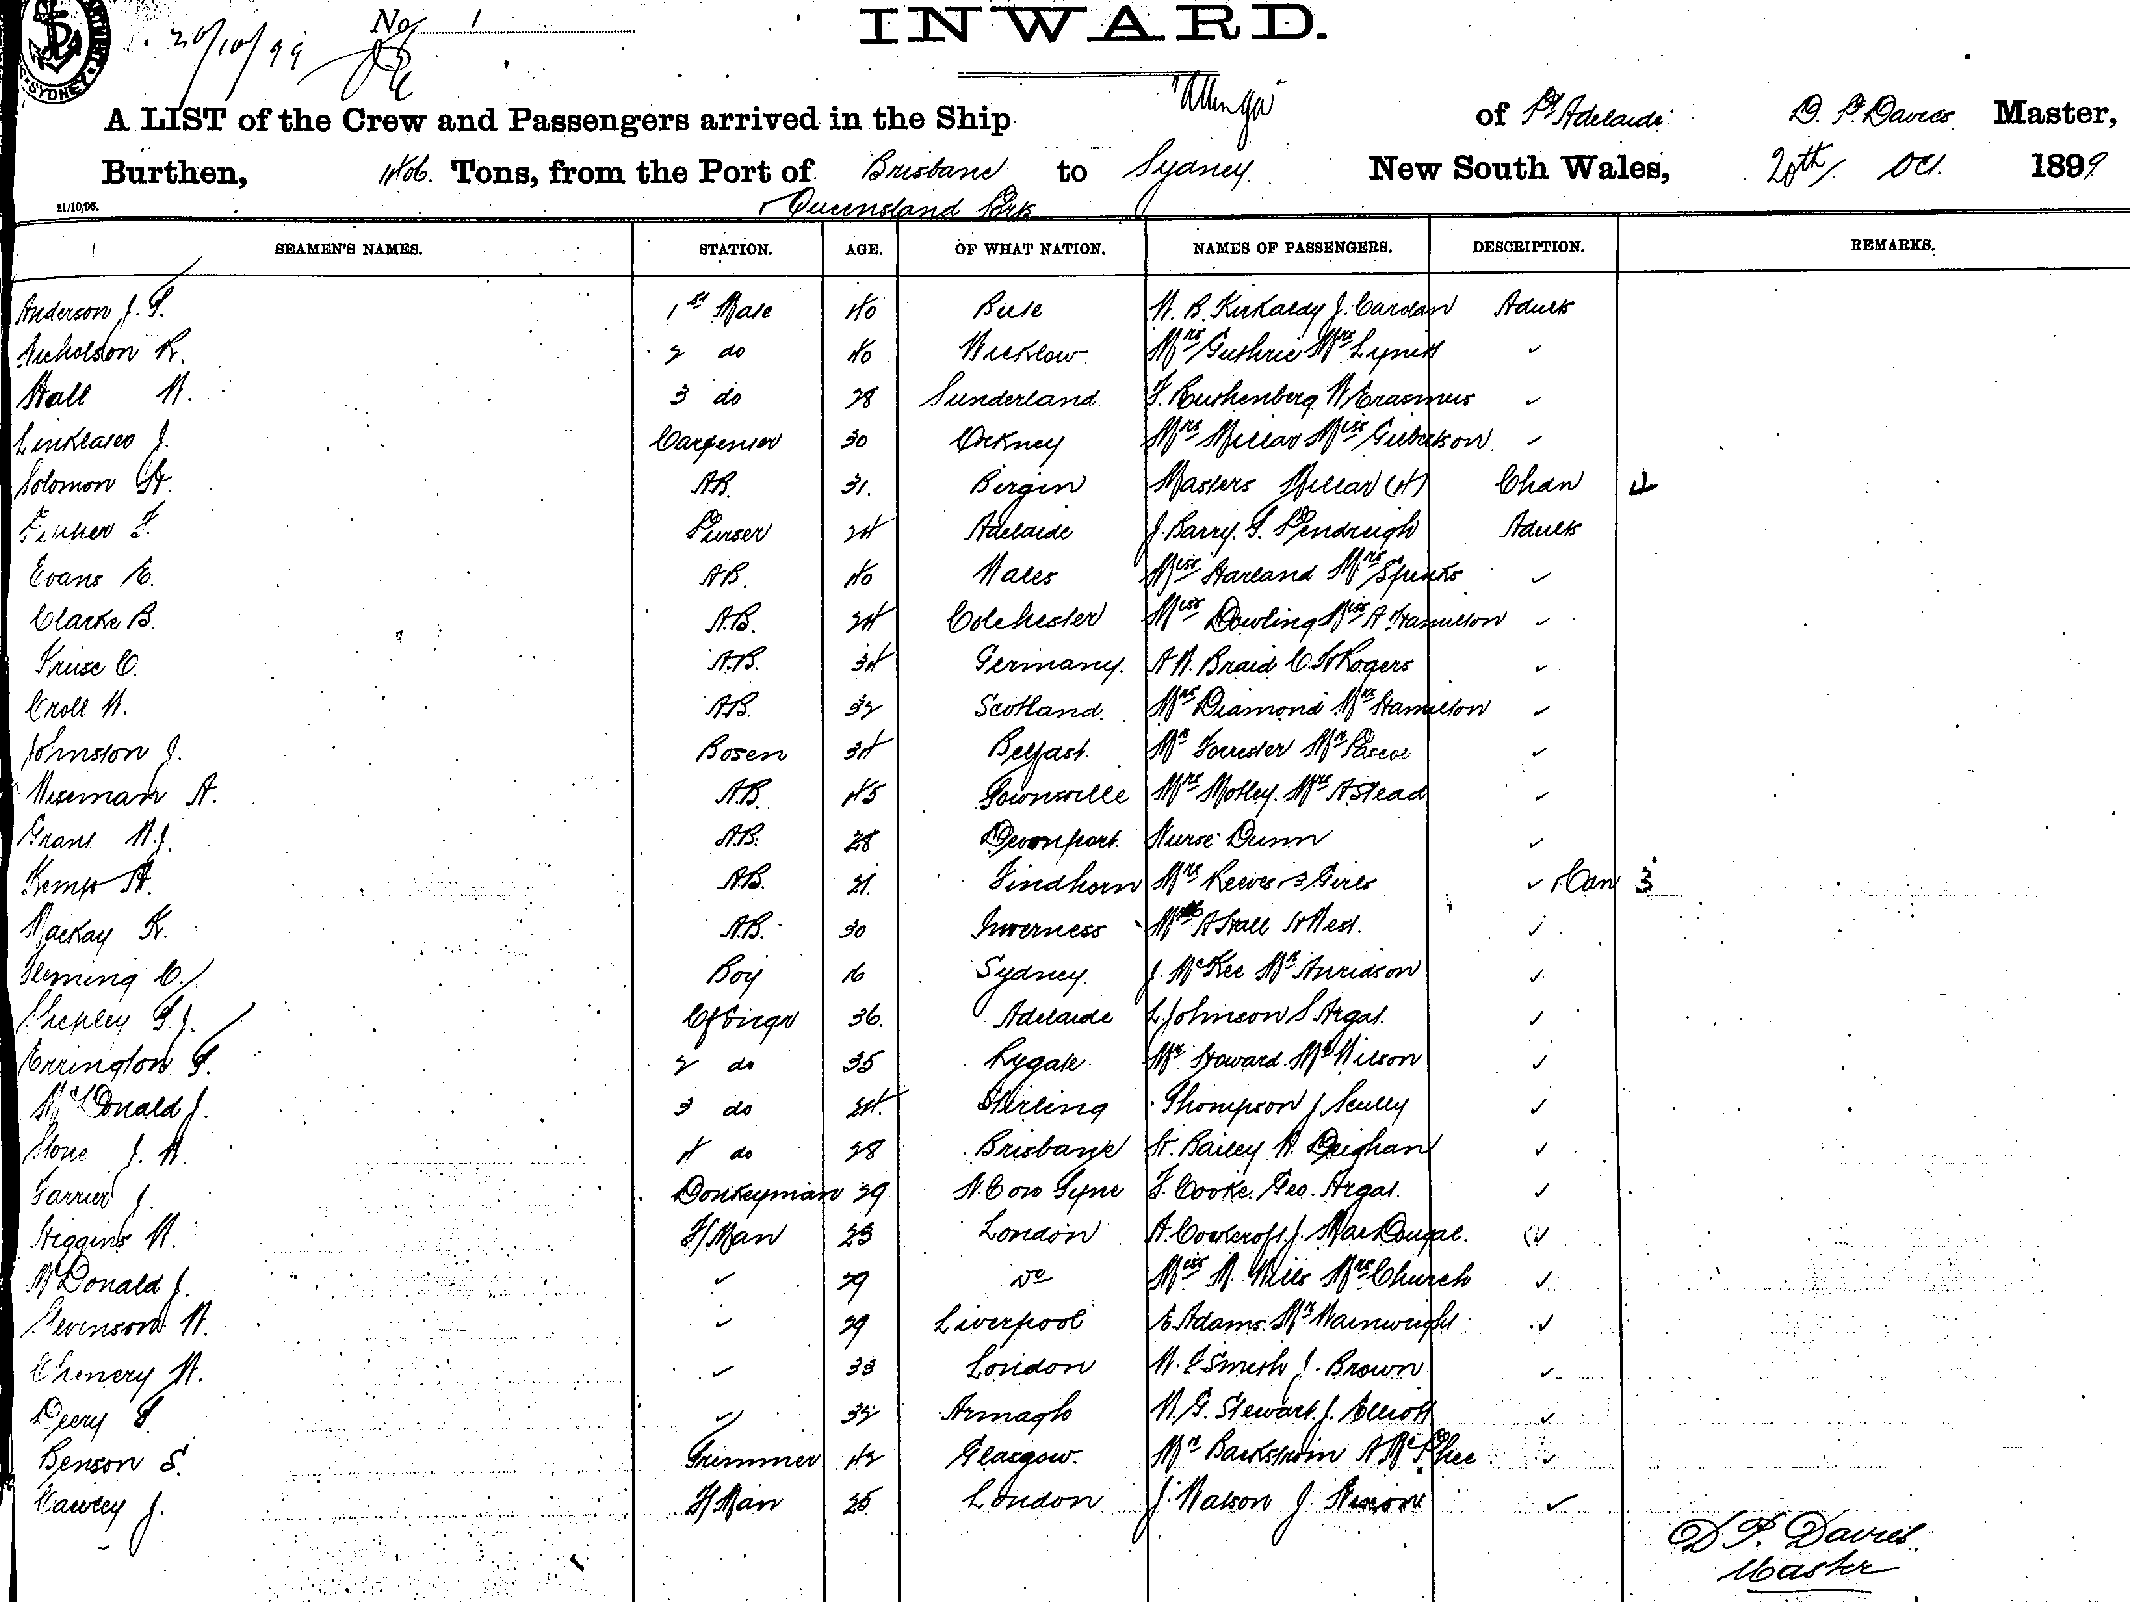 20/10/99 No 1
INWARD.
SYDNEY
A LIST of the Crew and Passengers arrived in the Ship "Allinga" of Pt Adelaide D. P. Davies Master,
Burthen, Tons, from the Port of Brisbane to Sydney New South Wales, 20th Oct. 1899
21/10/96. Queensland Pts
SEAMEN'S NAMES. STATION. AGE. OF WHAT NATION. NAMES OF PASSENGERS. DESCRIPTION. REMARKS.
Anderson J. 1st Mate 40 Bute W. B. Kirkaldy J. Carolan Adults
Nicholson R. 2 do 40 Wicklow Mrs Guthrie Mrs Lynch ✓
Hall W. 3 do 28 Sunderland F. Rushenberg W Erasmus ✓
Linklater J. Carpenter 30 Orkney Mrs Millar Miss Gilbertson ✓
Solomon H. A.B. 31. Masters Millar (4) Chdn 4
F. Purser 24 Adelaide J. Barry. G. Pendreigh Adults
Evans E. A.B. 40 Wales Miss Harland Mrs Spinks ✓
Clarke B. A.B. 24 Colchester Miss Dowling Miss A Hamilton ✓
Kruse C. A.B. 34 Germany. A W. Braid C H Rogers ✓
Croll W. A.B. 32 Scotland. Mrs Diamond Mrs Hamilton ✓
Johnston J. Bosen 34 Belfast. Mr Forrester Mr Pascoe ✓
Wiseman A. A.B. 45 Townsville Mrs Motley. Mrs Astead ✓
Grant W. J. A.B. 28 Devonport. Nurse Dunn ✓
Kemp A. A.B. 21. Findhorn Mrs Reeves 3 Girls ✓ 3
Mackay K. A.B. 30 Inverness A Hall H West. ✓
Fleming C. Boy 16 Sydney. J. McKee Mr ✓
Shepley J. Cf Engr 36. Adelaide L. Johnson S Argat. ✓
Errington 2 do 35 Mr Howard. Mr Wilson ✓
McDonald J. 3 do 24. Stirling Thompson J Scully ✓
Stone J. W. 4 do 28 Brisbane H. Bailey W. Deighan ✓
Farrier J. Donkeyman 29 N. Cas Tyne F. Cooke. Geo. Argat. ✓
Higgins W. F/Man 23 London A. Cowcroft J. MacDougal. ✓
McDonald J. ✓ 29 do Miss M. Mills Mrs Church ✓
Stevenson W. ✓ 29 Liverpool E Adams. Mr Wainwright ✓
Chenery H. ✓ 33 London W. Smith J. Brown ✓
Deery ✓ 32 Armagh W. G. Stewart. J. Elliott ✓
Benson S. Trimmer 42 Glasgow. Mr Backstrom A McPhee ✓
Cawley J. F/Man 25 London J. Watson J. ✓
D. P. Davies.
Master